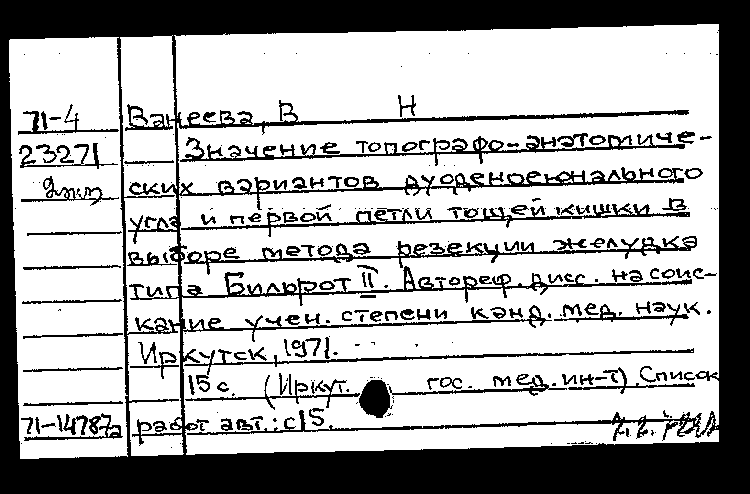 71-4 Ванеева, В Н
23271 Значение топографо-анатомиче-
ских вариантов дуоденоеюнального
угла и первой петли тощей кишки в
выборе метода резекции желудка
типа Бильрот II. Автореф. дисс. на соис-
кание учен. степени канд. мед. наук.
Иркутск, 1971.
15 с. (Иркут. гос. мед. ин-т). Список
71-14787а работ авт.: с 15.